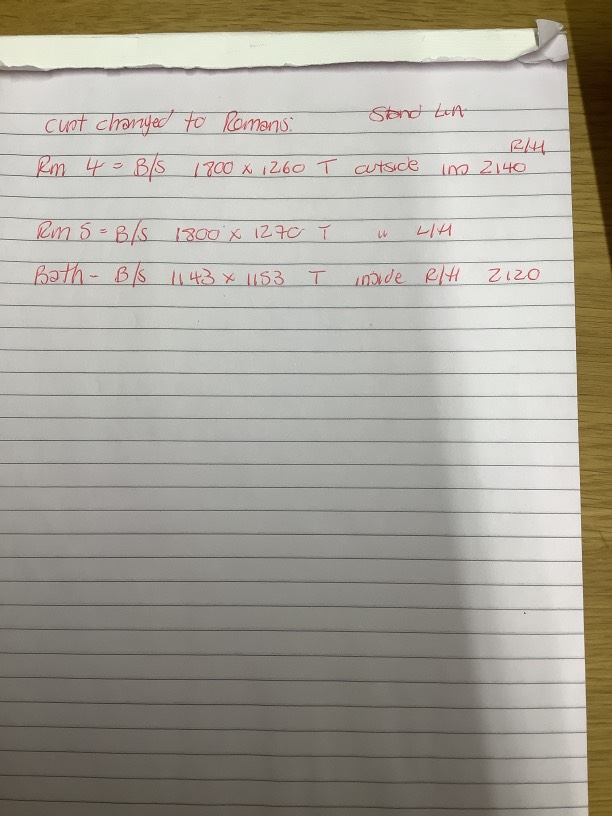 cust changed to Romans. Stand Lin.
R/H
Rm 4 = B/S 1800 x 1260 T outside 2140
Rm 5 = B/S 1800 x 1270 T " L/H
Bath - B/S 1143 x 1153 T inside R/H 2120